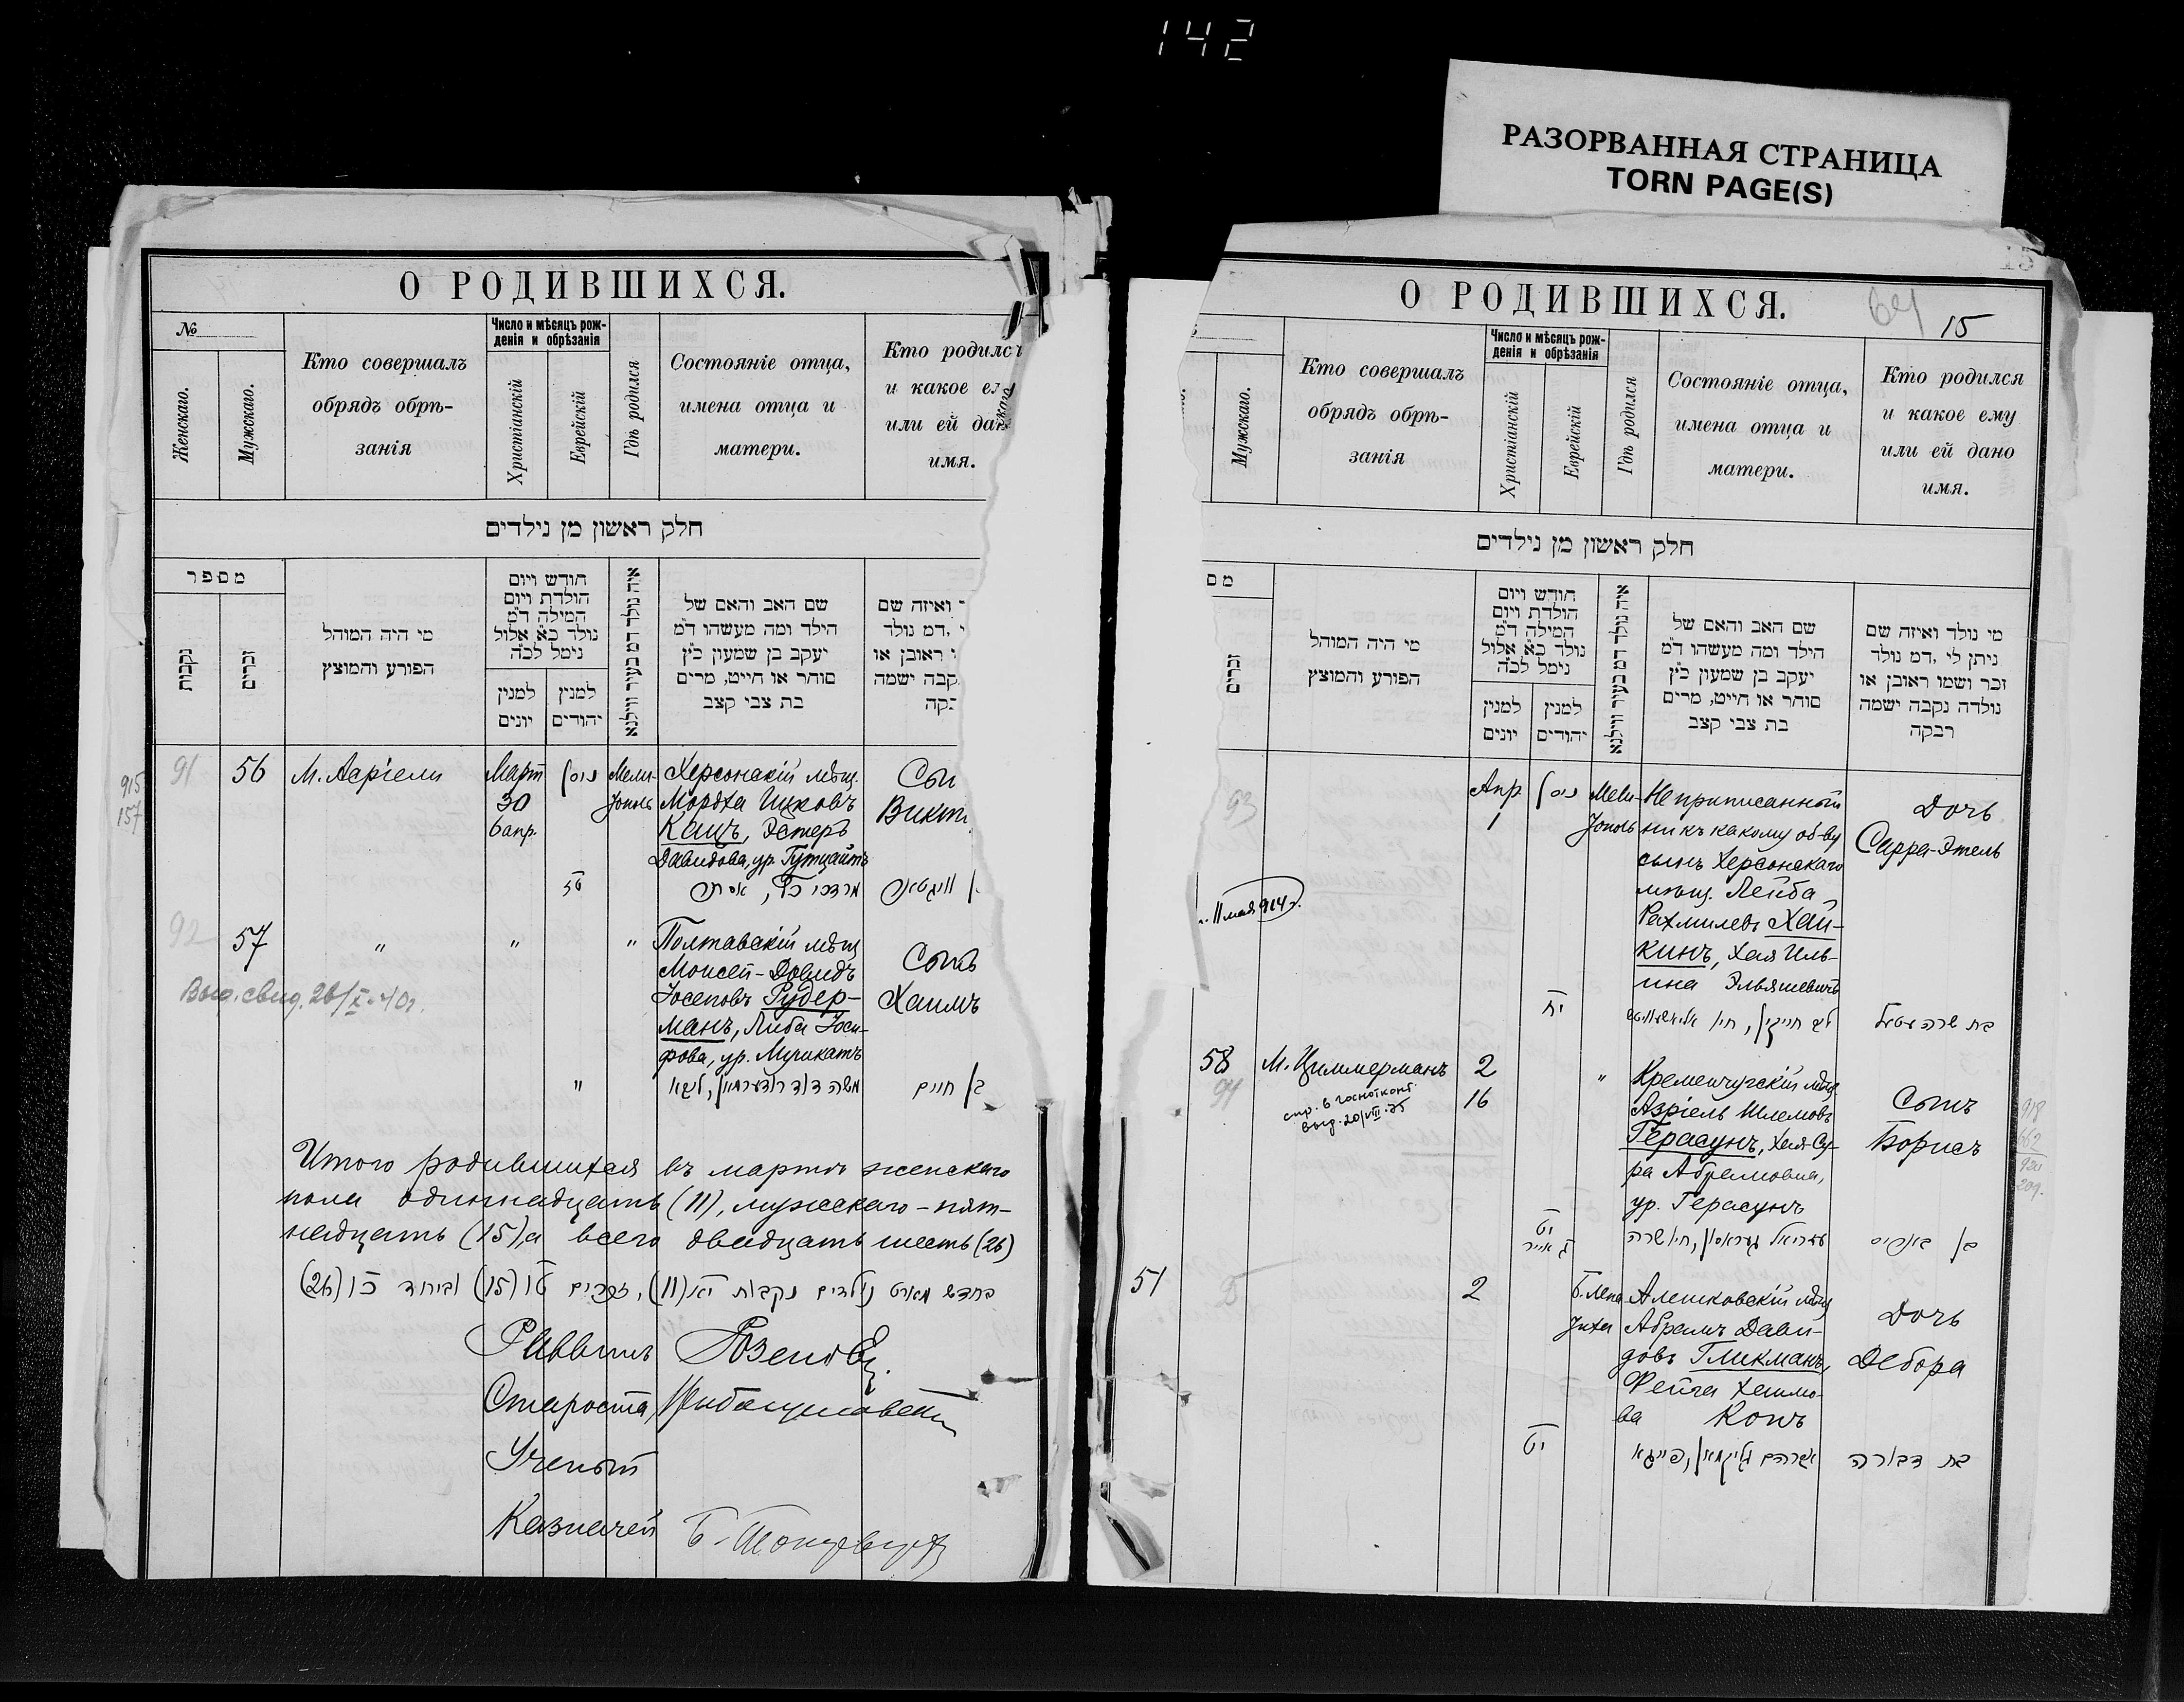 142
РАЗОРВАННАЯ СТРАНИЦА
TORN PAGE(S)
О РОДИВШИХСЯ.
№
Женскаго.
Мужскаго.
Кто совершалъ
обрядъ обрѣ-
занія
Число и мѣсяцъ рож-
денія и обрѣзанія
Христіанскій
Еврейскій
Гдѣ родился
Состояніе отца,
имена отца и
матери.
Кто родилс
и какое е
или ей дан
имя.
חלק ראשון מן נילדים
מספר
נקבות
זכרים
מי היה המוהל
הפורע והמוצץ
חודש ויום
הולדת ויום
המילה ד״מ
נולד כא אלול
נימל לכ״ה
למנין
יונים
למנין
יהודים
איה נולד דמ בעיר ווילנא
שם האב והאם של
הילד ומה מעשהו ד״מ
יעקב בן שמעון כ״ץ
סוחר או חייט, מרים
בת צבי קצב
ואיזה שם
דמ נולד
ראובן או
קבה ישמה
בקה
915
157
91
56
М. Азріели
Март
30
6 апр.
ניסן
Мели-
тополь
Херсонскій мѣщ.
Мордха Ицковъ
Кацъ, Эстеръ
Давидова, ур. Гутцайтъ
Сын
Викт
מרדכי כץ, אסתר
92
57
"
"
"
Полтавскій мѣщ
Моисей-Довидъ
Іосеповъ Рудер-
манъ, Либа Іоси-
фова, ур. Мучикатъ
Сынъ
Хаимъ
Выд. свид. 26/X-40г.
"
משה דוד רודערמאן, ליבא
בן חיים
Итого родившихся въ мартѣ женскаго
пола одиннадцать (11), мужескаго - пят-
надцать (15), а всего двадцать шесть (26)
בחדש מארט נולדים נקבות יא (11), זכרים טו (15) וביחד כו (26)
Раввинъ
Староста
Ученый
Казначей
О РОДИВШИХСЯ.
64
15
Мужскаго.
Кто совершалъ
обрядъ обрѣ-
занія
Число и мѣсяцъ рож-
денія и обрѣзанія
Христіанскій
Еврейскій
Гдѣ родился
Состояніе отца,
имена отца и
матери.
Кто родился
и какое ему
или ей дано
имя.
חלק ראשון מן נילדים
מס
זכרים
מי היה המוהל
הפורע והמוצץ
חודש ויום
הולדת ויום
המילה ד״מ
נולד כא אלול
נימל לכ״ה
למנין
יונים
למנין
יהודים
איה נולד דמ בעיר ווילנא
שם האב והאם של
הילד ומה מעשהו ד״מ
יעקב בן שמעון כ״ץ
סוחר או חייט, מרים
בת צבי קצב
מי נולד ואיזה שם
ניתן לי, דמ נולד
זכר ושמו ראובן או
נולדה נקבה ישמה
רבקה
93
Апр.
1
ניסן
Мели-
тополь
Не приписанный
ни къ какому об-ву
сынъ Херсонскаго
мѣщ. Лейба
Рахмилевъ Хай-
кинъ, Хая Иль-
ина Эльяшевичъ
Дочь
Сарра-Этель
11 мая 914 г.
יח
בת שרה עטעל
58
94
М. Циммерманъ
спр. в госнотконт.
выд. 20/VIII-25
2
16
"
Кременчугскій мѣщ.
Азріель Шлемовъ
Герасунъ, Хая-Су-
ра Абрамовна,
ур. Герасунъ
Сынъ
Борисъ
יט
ג אייר
עזריאל געראסון, חיה שרה
בן באריס
51
2
Б. Лепа
тиха
Алешковскій мѣщ
Абрамъ Дави-
довъ Гликманъ,
Фейга Хаимо-
ва Конъ
Дочь
Дебора
יט
אברהם גליקמאן, פייגא
בת דבורה